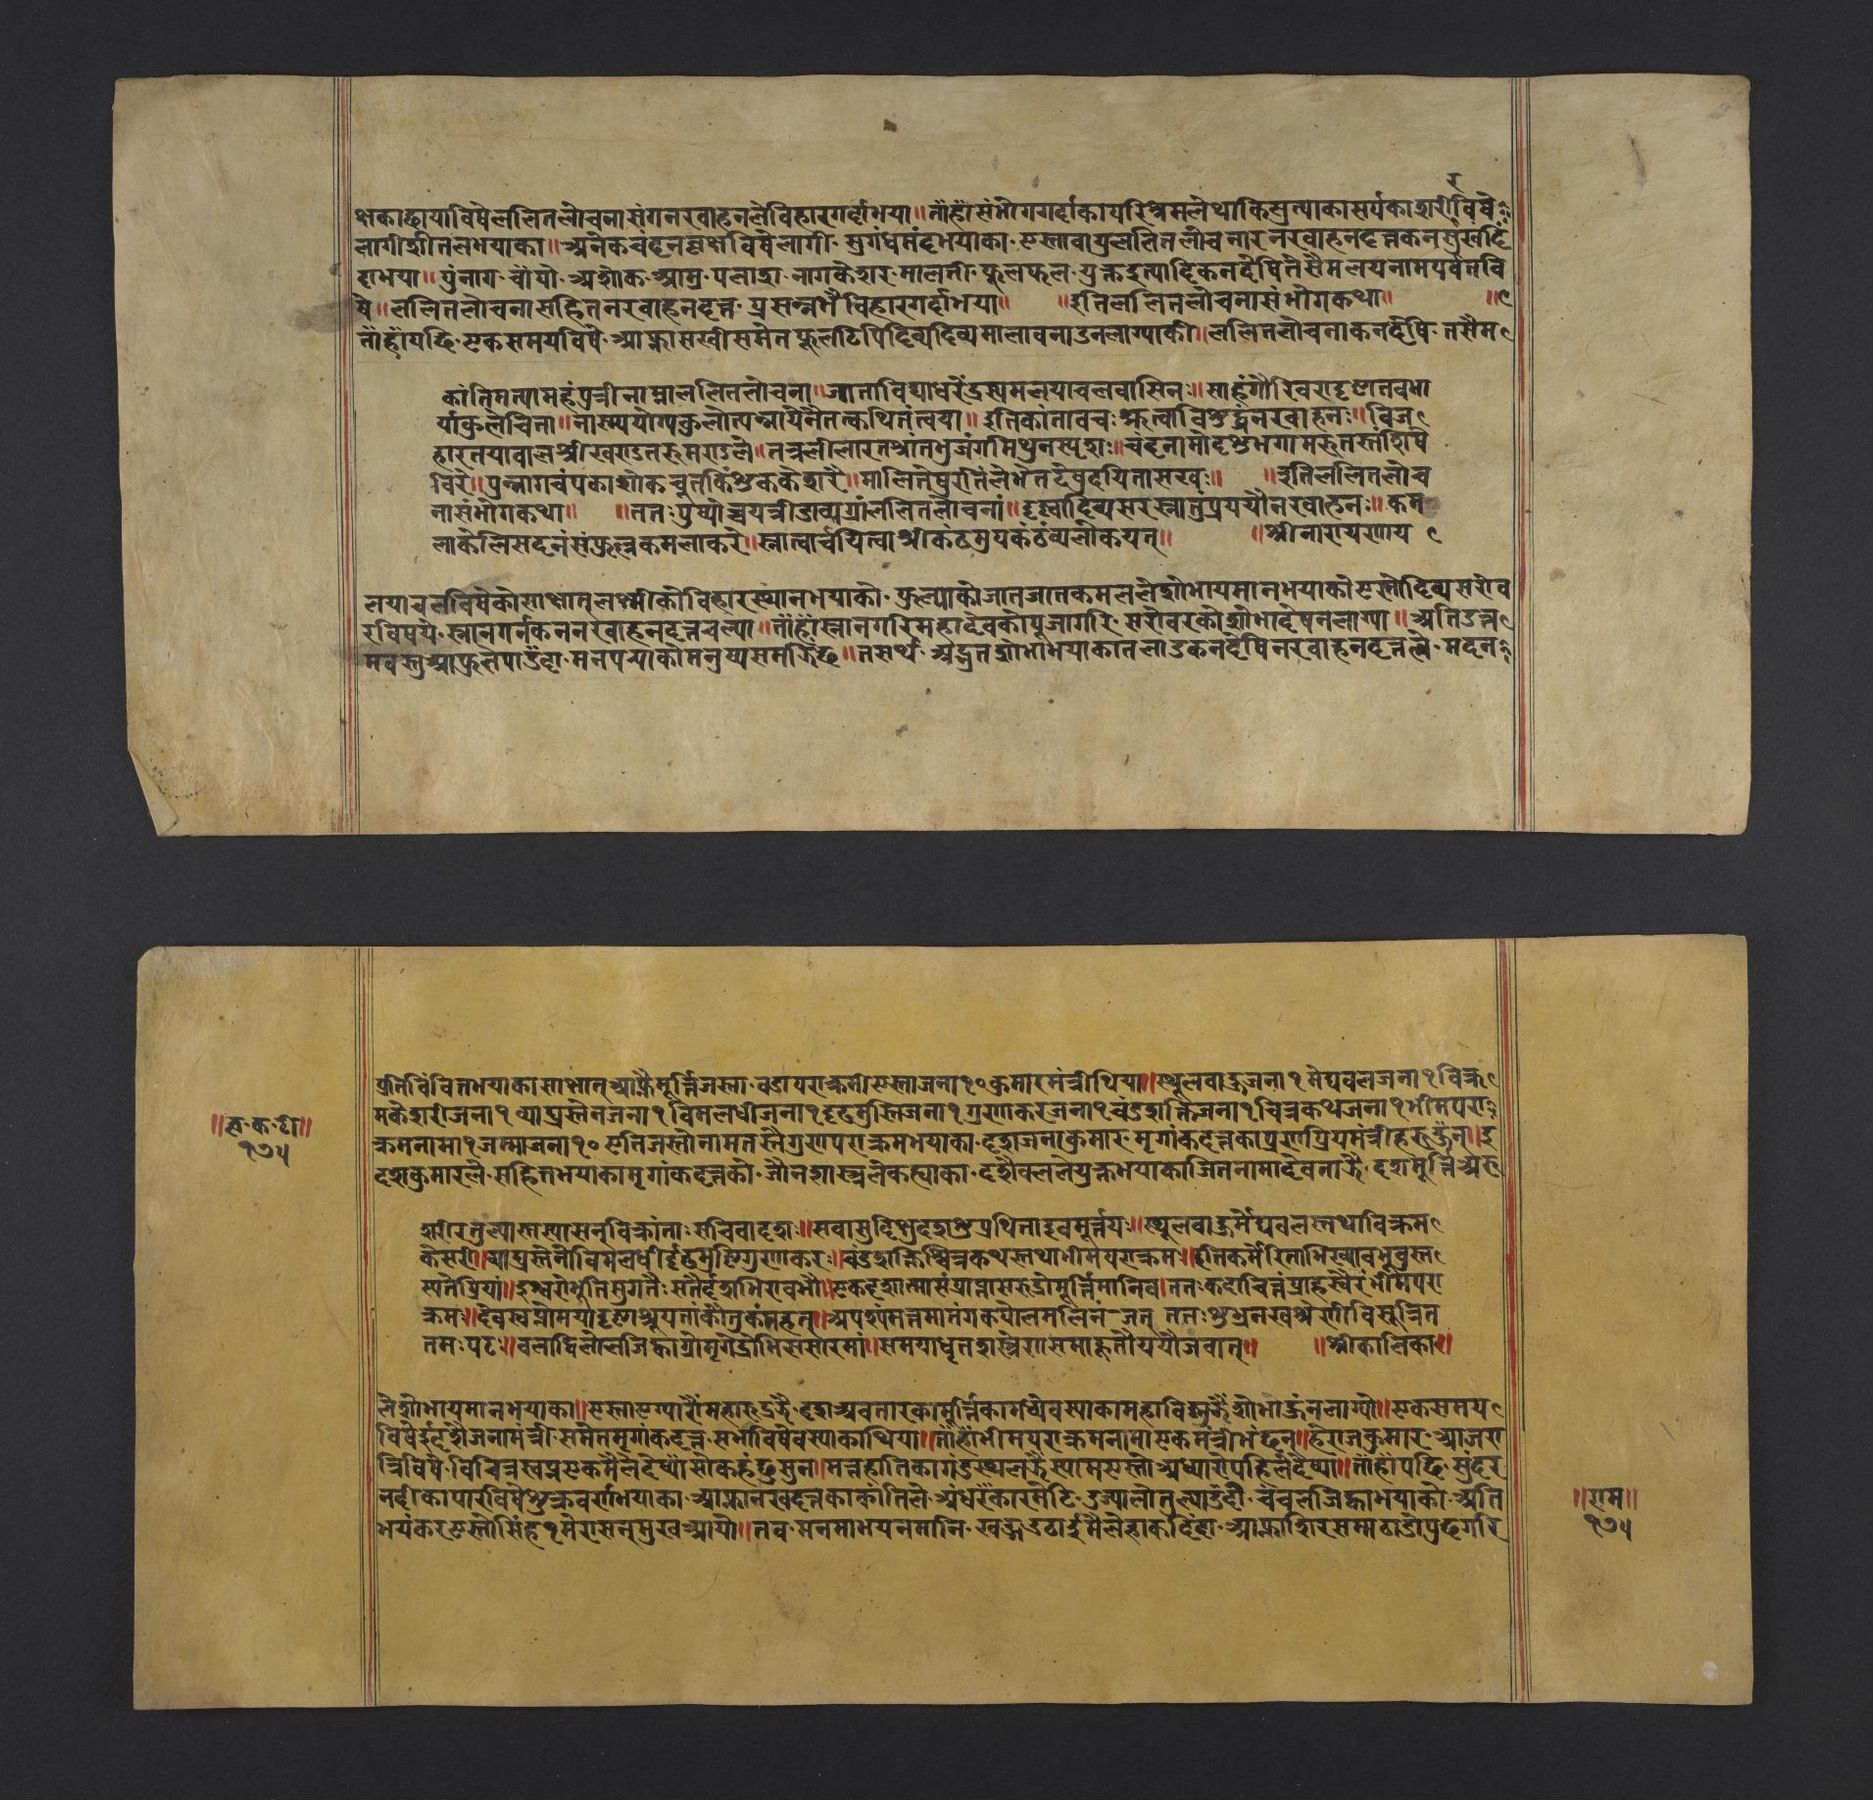 र
क्षकाछायाविषेललितलोचनासंगनरवाहनलेविहारगर्दाभया॥ताँहाँसंभोगगर्दाकापरिश्रमलेथाकिसुत्याकासर्पकाशरीरविषे
लागीशीतलभयाका॥अनेकचंदनवृक्षविषेलागी·सुगंधमंदभयाका·एस्तावायुललितलोचनारनरवाहनदत्तकनसुखदिँ
दाभया॥पुंनाग·चाँपो·अशोक·आम्र·पलाश·नागकेशर·मालती·फुलफल·युक्तइत्यादिकनदेषितेसैमलयनामपर्वतवि
षे॥ललितलोचनासहितनरवाहनदत्त·प्रसन्नभैविहारगर्दाभया॥ ॥इतिललितलोचनासंभोगकथा॥ ॥
ताँहाँपछि·एकसमयविषे·आफ्नासखीसमेतफूलटिपिदिव्यदिव्यमालावनाउनलाग्याकी॥ललितलोचनाकनदेषि·तसैम
कांतिमत्यामहंपुत्रीनाम्नाललितलोचना॥जाताविद्याधरेंद्रस्यमलयाचलवासिनः॥साहंगौरिवरादृष्टातवभा
र्याकुलोचिता॥नास्म्ययोग्यकुलोत्पन्नायेनैतत्कथितंत्वया॥इतिकांतावचःश्रुत्वाविशुद्धंनरवाहनः॥विज
हारतयाबालश्रीखण्डतरुमण्डले॥तत्रलीलारतश्रांतभुजंगमिथुनस्पृशः॥चंदनामोदशुभगामरुतस्तंशिषे
विरे॥पुन्नागचंपकाशोकचुतकिंशुककेशरे॥मालितेषुरतिंलेभेतदेषुदयितासखः॥ ॥इतिललितलोच
नासंभोगकथा॥ ॥ततःपुष्पोच्चयक्रीडाव्यग्रांललितलोचनां॥दृष्ट्वादिव्यसरस्नातुंप्रययौनरवाहनः॥कम
लाकेलिसदनंसंफुल्लकमलाकरे॥स्नात्वार्चयित्वाश्रीकंठमुपकंठंव्यलोकयत्॥ ॥श्रीनारायणाय
लयाचलविषेकोसाक्षात्लक्ष्मीकोविहारस्थानभयाको·फुल्याकोजातजातकमलले·शोभायमानभयाकोएस्तोदिव्यसरोव
रविषये·स्नानगर्नकननरवाहनदत्तचल्या॥ताँहाँस्नानगरिमहादेवकोपूजागरि·सरोवरकोशोभादेषनलाग्या॥अतिउत्त
मवस्तुआफुलेपाउँदा·मनपर्‍याकोमनुष्यसमझिँछ॥तसर्थ·अद्भुतशोभाभयाकातलाउकनदेषिनरवाहनदत्तले·मदन
प्रतिविंवितभयाकासाक्षात्आफ्नैमूर्त्तिजस्ता·वडापराक्रमीएस्ताजना१०कुमारमंत्रीथिया॥स्थूलवाहुजना१मेघवलजना१विक्र
मकेशरीजना१व्याघ्रसेनजना१विमलधीजना१दृढमुस्तिजना१गुणाकरजना१चंडशक्तिजना१चित्रकथजना१भीमपरा
क्रमनामा१जम्माजना१०एतिजस्तोनामतस्तैगुणपराक्रमभयाका·दशजनाकुमार·मृगांकदत्तकाप्राणप्रियमंत्रीहरूहुँन्॥इ
दशकुमारले·सहितभयाकामृगांकदत्तको·जौनशास्त्रलेकह्याका·दशैवललेयुक्तभयाकाजितनामादेवताझैँ·दशमूर्त्तिअरु
॥क·क·दी॥
१७५
शरीरतुल्यास्तस्यासन्विक्रांताःसचिवादश॥सबासुदिक्षुदशशुप्रथितादूवमूर्त्तयः॥स्थूलवाहुर्मेघवलस्तथाविक्रम
केसरी॥व्याघ्रसेनोविमलधीर्दृढमुष्टिगुणाकरः॥चंडशक्तिश्चित्रकथस्तथाभीमपराक्रमः॥इतिकर्मेरिताभिख्यावभूवुस्त
स्यतेप्रिया॥इश्वरोभूतिसुगतैःसतैर्दशभिराबभौ॥एकदशात्मासंप्राप्तासरुद्रोमूर्त्तिमानिव॥ततःकदाचित्तंप्राहस्वैरंभीमपरा
क्रमः॥देवस्वप्नोमयादृष्टःश्रूयतांकौतुकंमहत्॥अपश्यंमत्तमातंगकपोलमलिनंजत्ततःशुभ्रनखश्रेणीविसूत्रित
तमःपटः॥वलाद्विलोलजिह्वाग्रोमृगेंद्रोभिससारमां॥समयाधृतशस्त्रेणसमाहूतोययौजवात्॥ ॥श्रीकालिका॥
लेशोभायमानभयाका॥एस्ताएग्यारौँमहारुद्रझैँ·दशअवतारकामूर्त्तिकामध्येवस्याकामहाविष्णुझैँशोभाहुंनलाग्यो॥एकसमय
विषेई·दशैजनामंत्री·समेतमृगांकदत्त·सभाविषेवस्याकाथिया॥ताँहाँभीमपराक्रमनामाएकमंत्रीभंछन्॥हेराजकुमार·आजरा
त्रिविषे·विचित्रस्वप्नएकमैलेदेष्याँसोकहंछुसुन॥मत्तहात्तिकागंडस्थलझैँश्यामएस्तोअध्यारोपहिलेदेष्याँ॥ताँहाँपछि·सुंदर
नदीकापारविषेशुक्रवर्णभयाका·आफ्नानखदन्तकाकांतिले·अंधरंकारमेटि·उज्यालोतुल्याउँदो·चंचलजिह्वाभयाको·अति
भयंकरएस्तोसिंह१मेरासन्मुखआयो॥तव·मनमाभयनमानि·खड्गउठाईमैलेहाकदिँदा·आफ्नाशिरसमाठाडोपुछगरि
॥राम॥
१७५